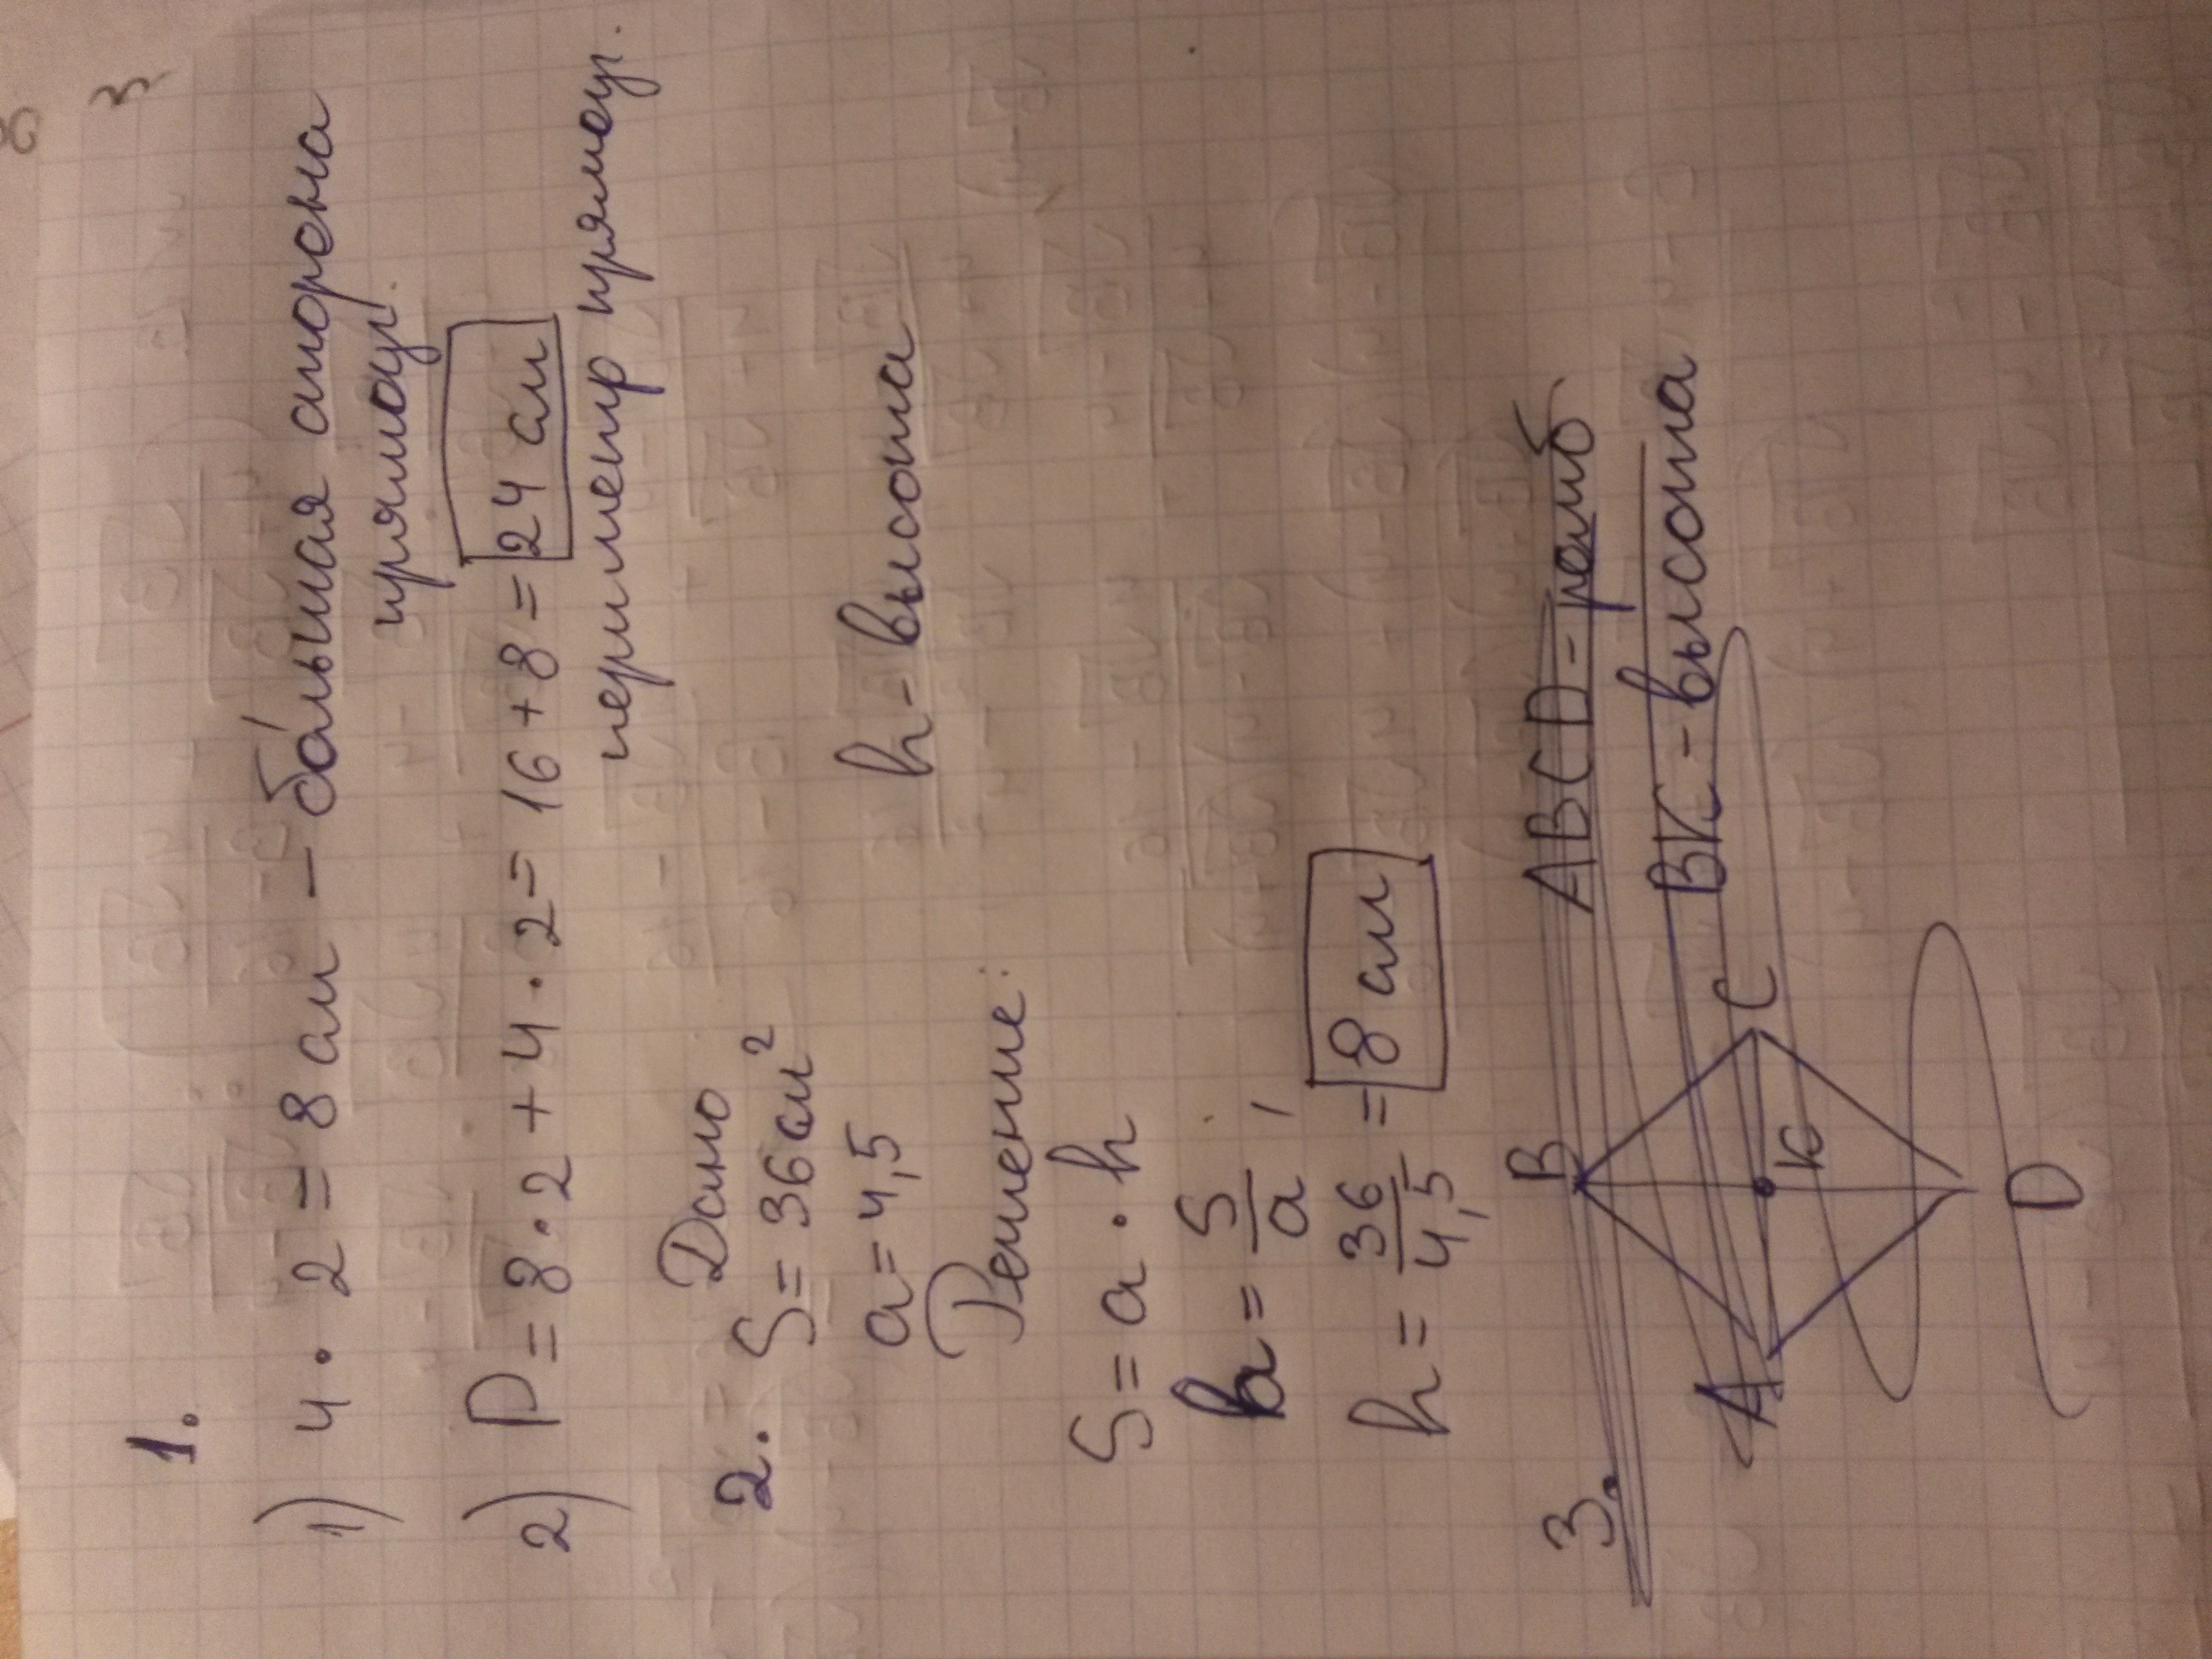 1.
1) 4 · 2 = 8 см – бо́льшая сторона
прямоуг.
2) P = 8 · 2 + 4 · 2 = 16 + 8 = 24 см
периметр прямоуг.
Дано
2. S = 36 см²
a = 4,5
h - высота
Решение:
S = a · h
h = S/a ,
h = 36/4,5 = 8 см
3. ABCD - ромб
BK - высота
B
A
C
K
D